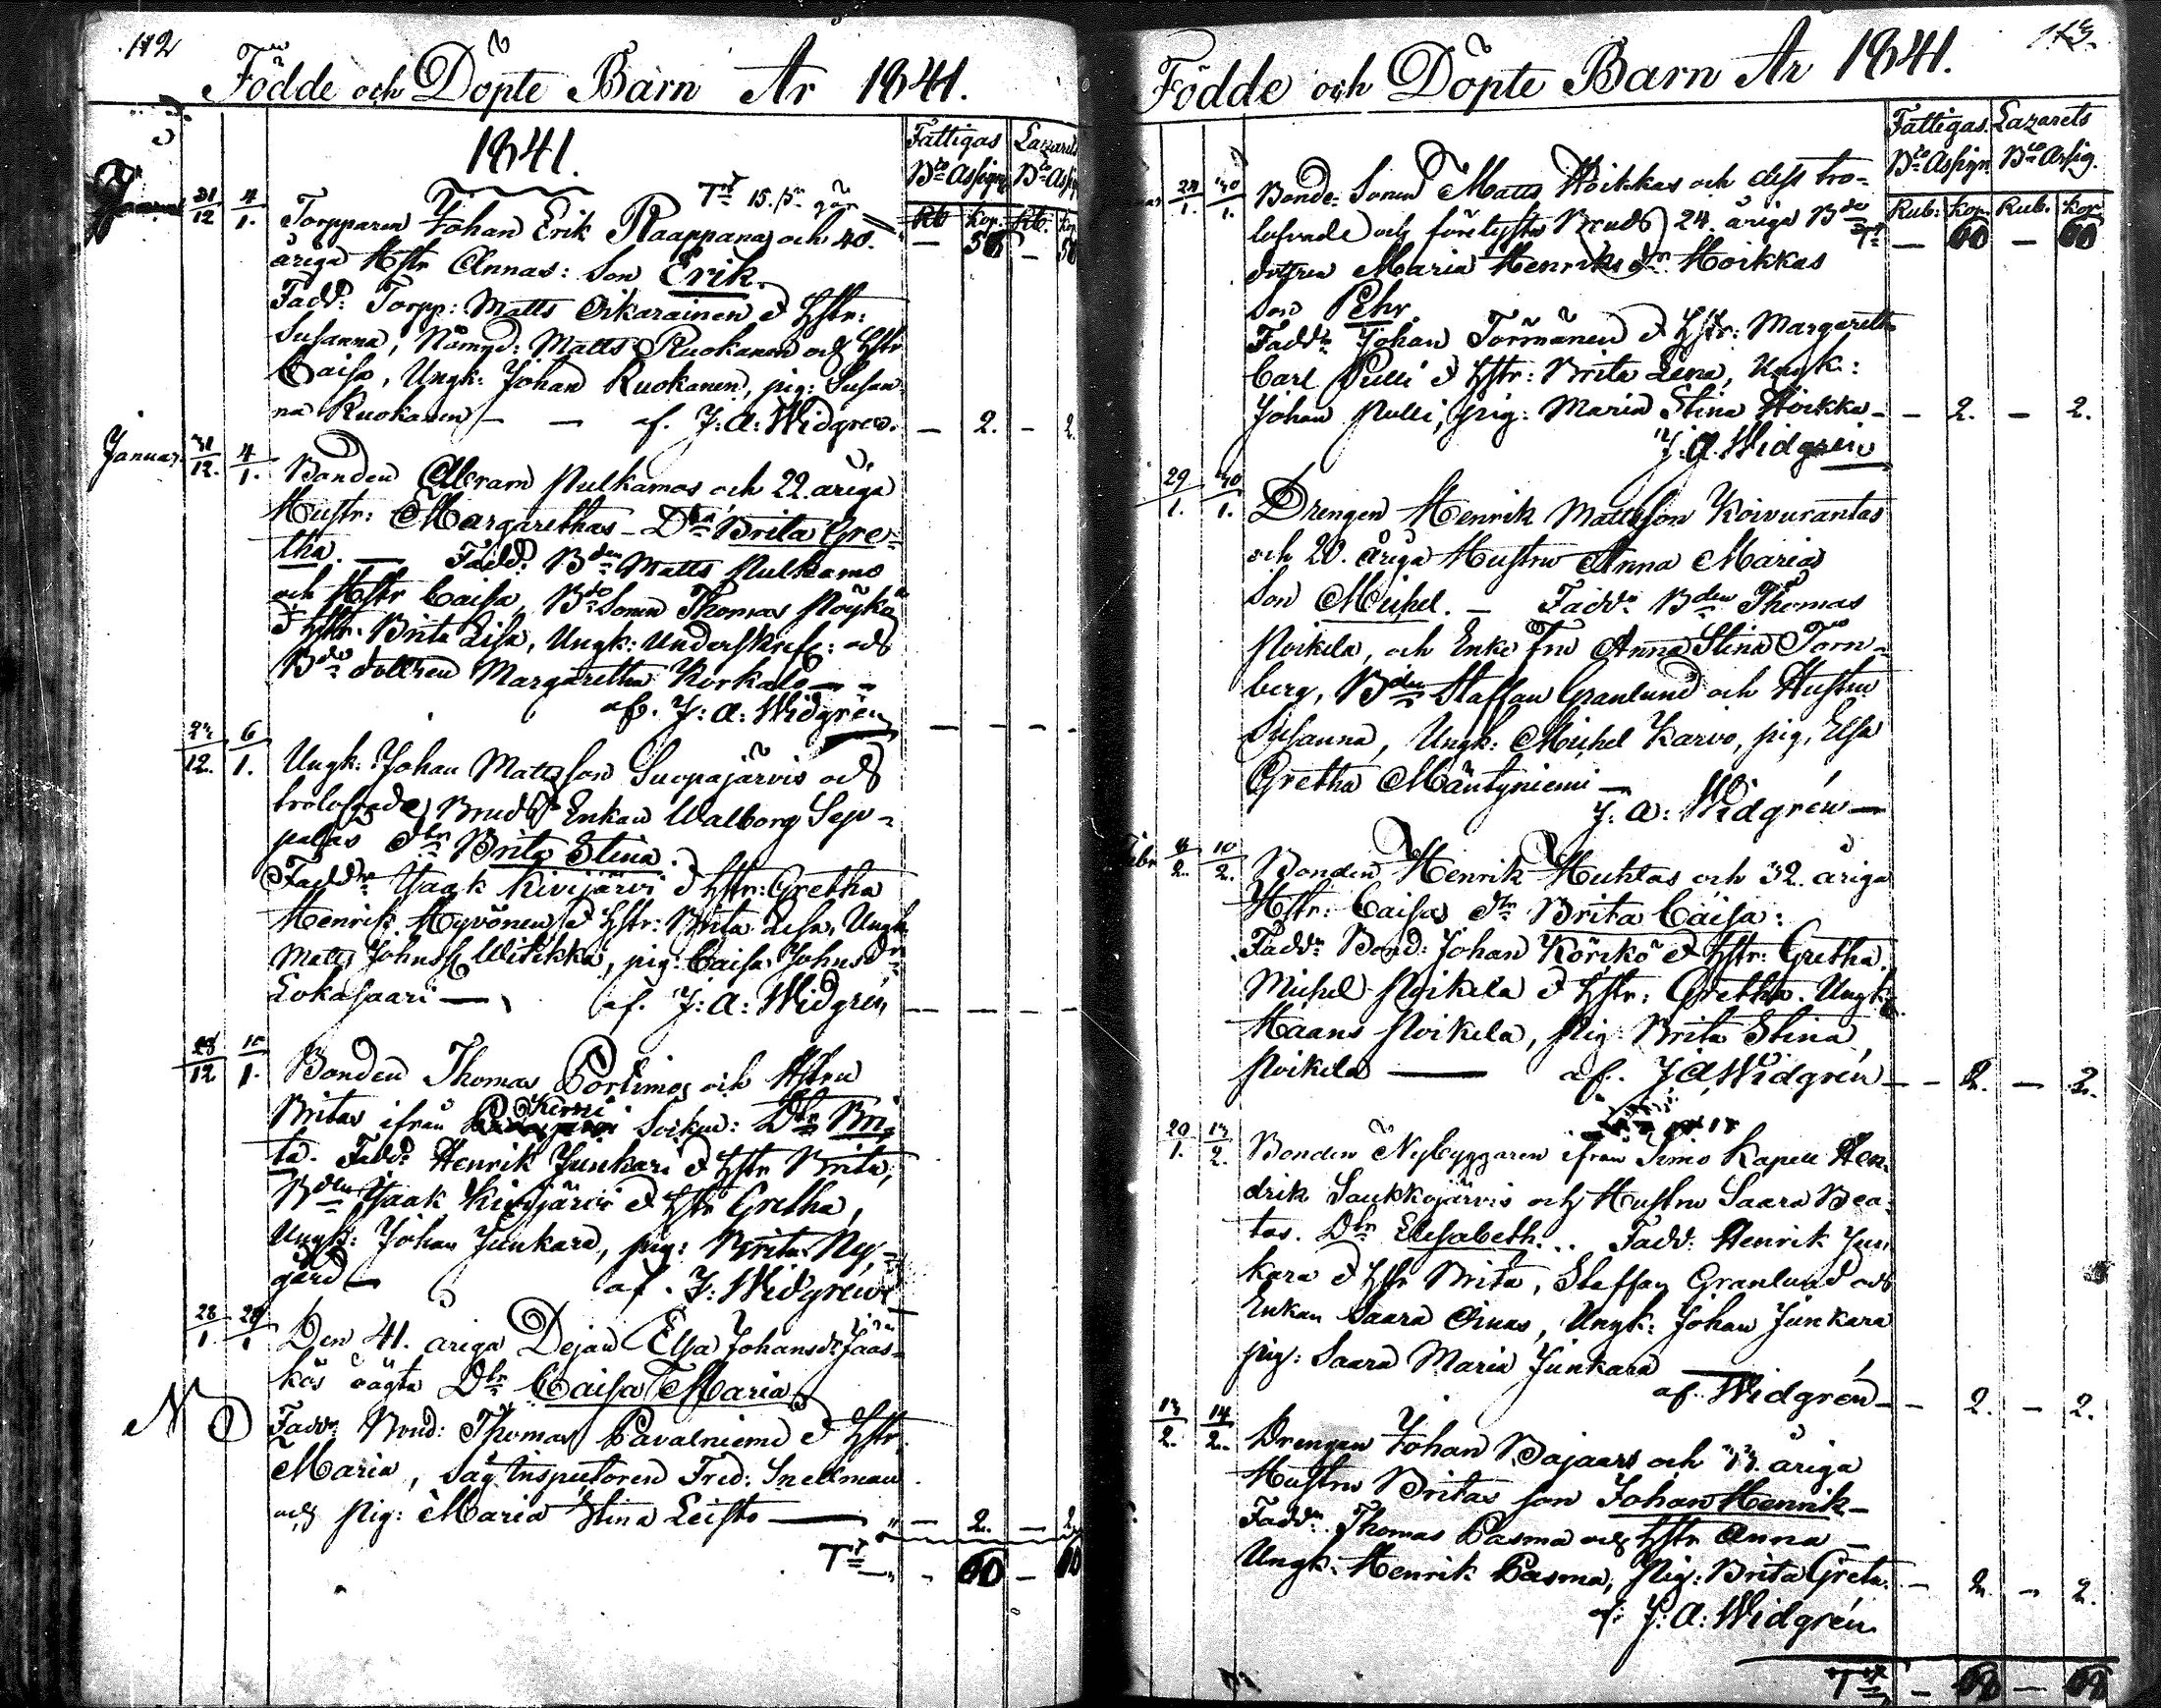 112
Födde och Döpte Barn År 1841.
1841.
Fattigas Lazarets
Bco Assign Bco Assig
Rb Kop. Rb. Kop
Trt 15. pr
31/12 4/1. Torpparen Johan Erik Raappanas och 40.
åriga Hstr Annas: Son Erik.
Fadd: Torpp: Matts Oikarainen & Hstr:
Susanna, Nämnd: Matts Ruokanen och Hstr
Caisa, Ungk: Johan Ruokanen, pig: Susan-
na Ruokanen — — af. J: A: Widgren. — 2. — 2.
Januar. 31/12. 4/1. Bonden Abram Pulkamos och 22 åriga
Hustr: Margarethas – Dtr Brita Gre-
tha. — Fadd: Bden Matts Pulkamo
och Hstr Caisa, Bde Sonen Thomas Pöykö
& Hstr. Brita Lisa, Ungk: Underskref: och
Bde dottren Margaretha Korkalo — —
af. J: A: Widgrén
12. 6/1. Ungk: Johan Mattsson Suopajärvis och
trolofvade Bruds Enkan Walborg Sep-
palas Dtr Brita Stina.
Faddr Isaak Kivijärvi & Hstr: Gretha
Henrik Hyvönen & Hstr: Brita Lisa, Ungk
Matts Johnss Witikka, pig: Caisa Johnsdr
Lokasaari — af. J: A: Widgrén
28/12 10/1. Bonden Thomas Portimos och Hstru
Britas ifrån Kemi Sockn: Dtr Bri-
ta. Fadd: Henrik Junkari & Hstr Brita,
Bden Isaak Kivijärvi & Hstr Gretha,
Ungk: Johan Junkara, pig: Brita Ny-
gård — af. J: Widgrén
23/1. 24/1 Den 41. åriga Dejan Elsa Johansdr Jääs-
kös oägta Dtr Caisa Maria
NB
Fadd: Bond: Thomas Pavalniemi & Hstr
Maria, Såg Inspectoren Fred: Snellman
och Pig: Maria Stina Leisto — — 2. — 2.
Trt — 60 — 60
113.
Födde och Döpte Barn År 1841.
Fattigas Lazarets
Bco Assign Bco Assig.
Rub: Kop Rub. Kop
Trt — 60 — 60
1. 30/1. Bonde: Sonen Matts Hoikkas och dess tro-
lofvade och förelysta Bruds 24. åriga Bde
dottren Maria Henriks dr Hoikkas
Son Pehr.
Faddr Johan Törmänen & Hstr: Margaretha
Carl Pulli & Hstr: Brita Lena, Ungk:
Johan Pulli, pig: Maria Stina Hoikka — — 2. — 2.
J: A. Widgrén
29/1. 30/1. Drengen Henrik Mattsson Koivurantas
och 20. åriga Hustru Anna Marias
Son Michel. — Faddr Bden Thomas
Poikela, och Enke Fru Anna Stina Torn-
berg, Bden Staffan Granlund och Hustru
Susanna, Ungk: Michel Karvo, pig. Elsa
Gretha Mäntyniemi —
J: A: Widgrén —
Febr 2. 10/2. Bonden Henrik Huhtas och 32. åriga
Hstr: Caisas Dtr Brita Caisa:
Faddr Bond: Johan Körkö & Hstr: Gretha.
Michel Poikela & Hstr: Gretha. Ungk:
Haans Poikela, Pig: Brita Stina
Poikela — af. J A Widgrén — — 2. — 2.
20/1. 13/2. Bonden Nybyggaren ifrån Simo Kapell Hen-
drik Saukkojärvis och Hustru Saara Bea-
tas. Dtr Elisabeth... Fadd: Henrik Jun
kara & Hstr Brita, Staffan Granlund och
Enkan Saara Oinas, Ungk: Johan Junkara
pig: Saara Maria Junkara —
af. Widgrén — — 2. — 2.
13/2. 14/2. Drengen Johan Bajaars och 33. åriga
Hustru Britas son Johan Henrik —
Faddr. Thomas Pasma och Hstr Anna —
Ungk: Henrik Pasma, Pig: Brita Greta. — 2. — 2.
af: J: A: Widgrén
Trt